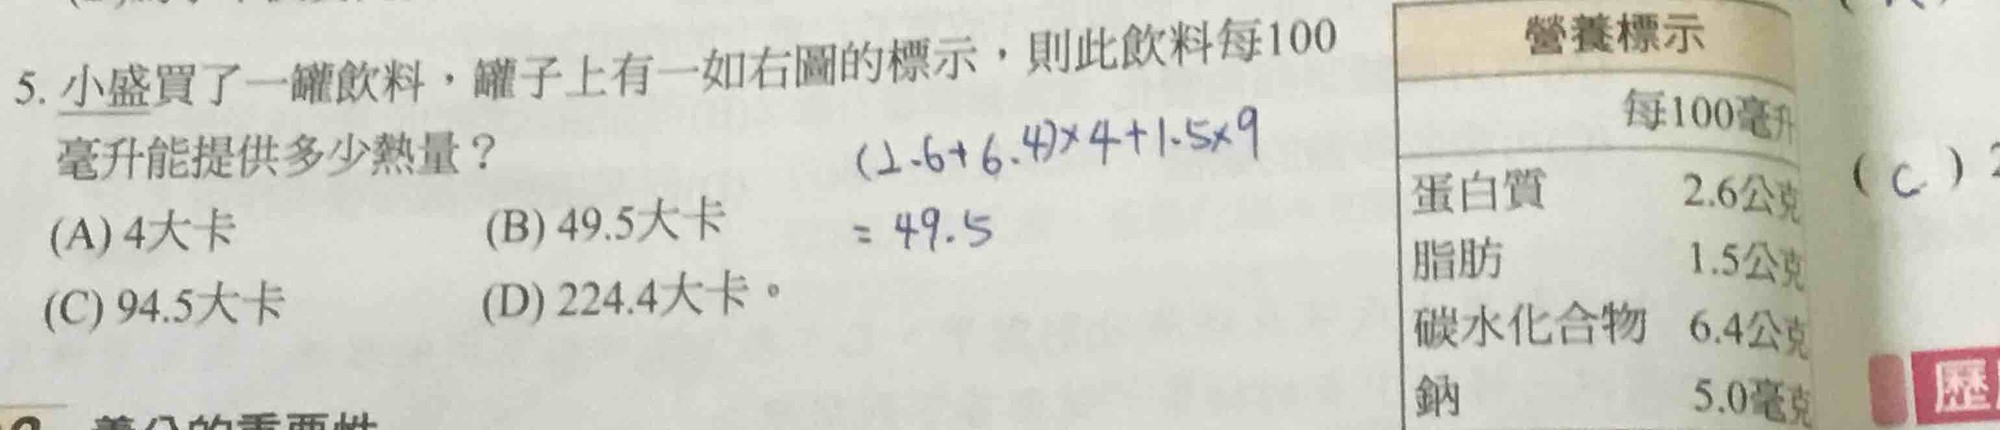 5. 小盛買了一罐飲料，罐子上有一如右圖的標示，則此飲料每100
毫升能提供多少熱量？
(A) 4大卡 (B) 49.5大卡
(C) 94.5大卡 (D) 224.4大卡。
(2.6+6.4)×4+1.5×9
= 49.5
營養標示
每100毫升
蛋白質 2.6公克
脂肪 1.5公克
碳水化合物 6.4公克
鈉 5.0毫克
( C ) 2
歷